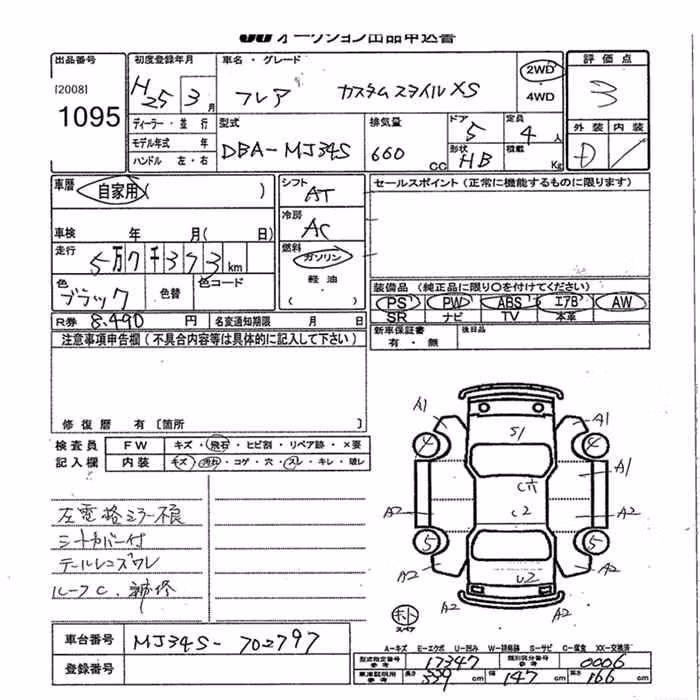 オークション出品申込書
出品番号
[2008]
1095
初度登録年月
H25 3月
ディーラー・並 行
モデル年式 年
ハンドル 左・右
車名・グレード
フレア カスタムスタイルXS
2WD
4WD
評価点
3
外装 内装
D
型式
DBA-MJ34S
排気量
660 CC
ドア
5
定員
4人
形状
HB
積載
Kg
車歴
自家用( )
車検 年 月( 日)
走行
5万7千373km
色
ブラック
色替
色コード
シフト
AT
冷房
AC
燃料
ガソリン
軽油
( )
セールスポイント(正常に機能するものに限ります)
装備品(純正品に限り○を付けてください)
PS PW ABS エアB AW
SR ナビ TV 本革
新車保証書
有・無
後日品
R券 8,490 円
名変通知期限 月 日
注意事項申告欄(不具合内容等は具体的に記入して下さい)
修復歴 有[箇所 ]
検査員
記入欄
FW キズ・飛石・ヒビ割・リペア跡・×要
内装 キズ・汚れ・コゲ・穴・スレ・キレ・破レ
左電格ミラー不良
シートカバー付
テールレンズワレ
ルーフC.補修
A1
A1
4
4
S1
A1
C
C2
A2
A2
5
5
A2
U2
A2
ホト
スペア
車台番号
MJ34S-702797
登録番号
A-キズ E-エクボ U-凹み W-補修跡 S-サビ C-腐食 XX-交換済
型式指定番号
参考
17347
類別区分番号
参考
0006
車庫証明用
参考
長さ 339 cm
幅 147 cm
高さ 166 cm